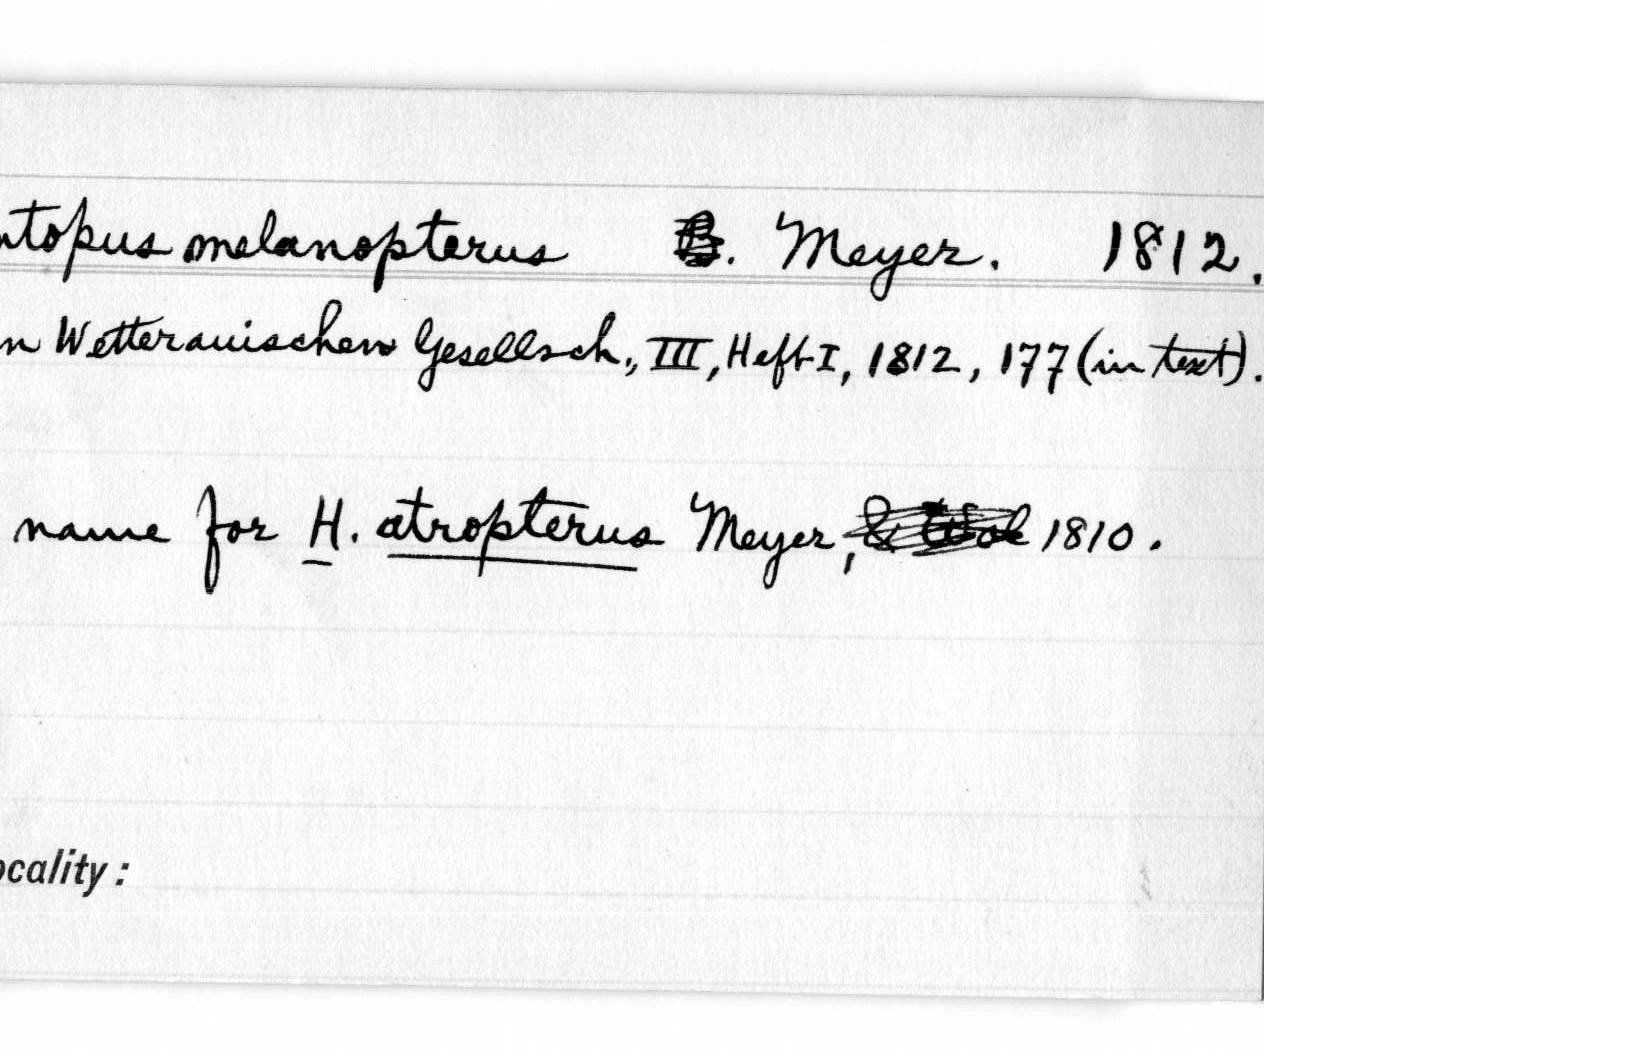 ntopus melanopterus B. Meyer. 1812.
n Wetterauischen Gesellsch., III, Heft I, 1812, 177 (in text).
name for H. atropterus Meyer, 1810.
ocality: